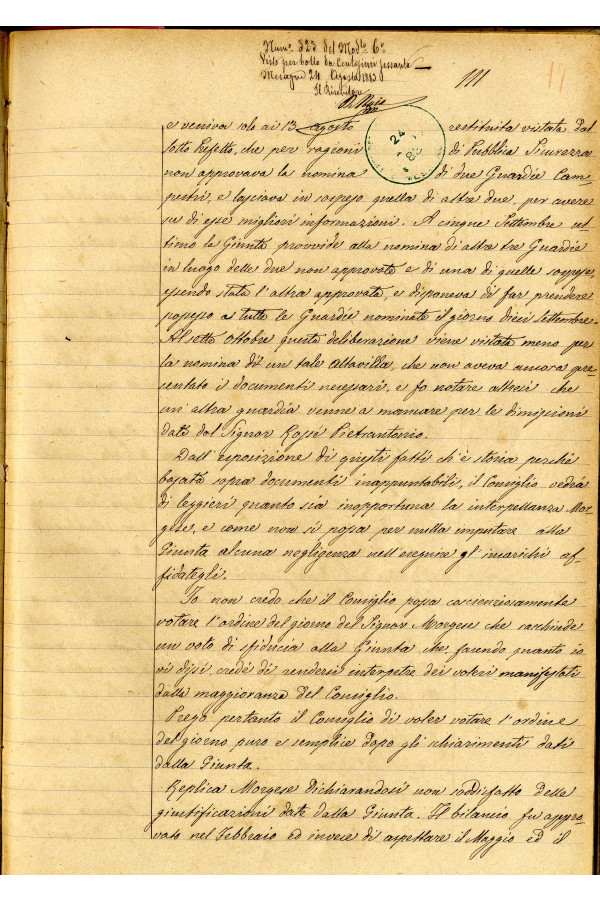 Num. 323 del Mod. 6°
Visto per bollo da Centesimi sessanta
Mesagne 24 Agosto 1883
Il Ricevitore
111
11
24
e veniva solo ai 13 agosto restituita vistata dal
Sotto Prefetto, che per ragioni di Pubblica Sicurezza
non approvava la nomina di due Guardie Cam-
pestri, e lasciava in sospeso quella di altre due, per avere
su di esse migliori informazioni. A cinque Settembre ul-
timo la Giunta provvide alla nomina di altre tre Guardie
in luogo delle due non approvate e di una di quelle sospese,
essendo stata l'altra approvata, e disponeva di far prendere
possesso a tutte le Guardie nominate il giorno dieci Settembre.
Al sette Ottobre questa deliberazione viene vistata meno per
la nomina di un tale Altavilla, che non aveva ancora pre-
sentato i documenti necessari, e fo notare altresì che
un'altra guardia venne a mancare per le dimissioni
date dal Signor Rossi Pietrantonio.
Dall'esposizione di questi fatti ch'è storia perché
basata sopra documenti inappuntabili, il Consiglio vedrà
di leggieri quanto sia inopportuna la interpellanza Mor-
gese, e come non si possa per nulla imputare alla
Giunta alcuna negligenza nell'eseguire gl'incarichi af-
fidategli.
Io non credo che il Consiglio possa coscienziosamente
votare l'ordine del giorno del Signor Morgese che racchiude
un voto di sfiducia alla Giunta che, facendo quanto io
vi dissi, crede di rendersi interpetre dei voleri manifestati
dalla maggioranza del Consiglio.
Prego pertanto il Consiglio di voler votare l'ordine
del giorno puro e semplice dopo gli schiarimenti dati
dalla Giunta.
Replica Morgese dichiarandosi non soddisfatto delle
giustificazioni date dalla Giunta. Il bilancio fu appro-
vato nel Febbraio ed invece di aspettare il Maggio ed il